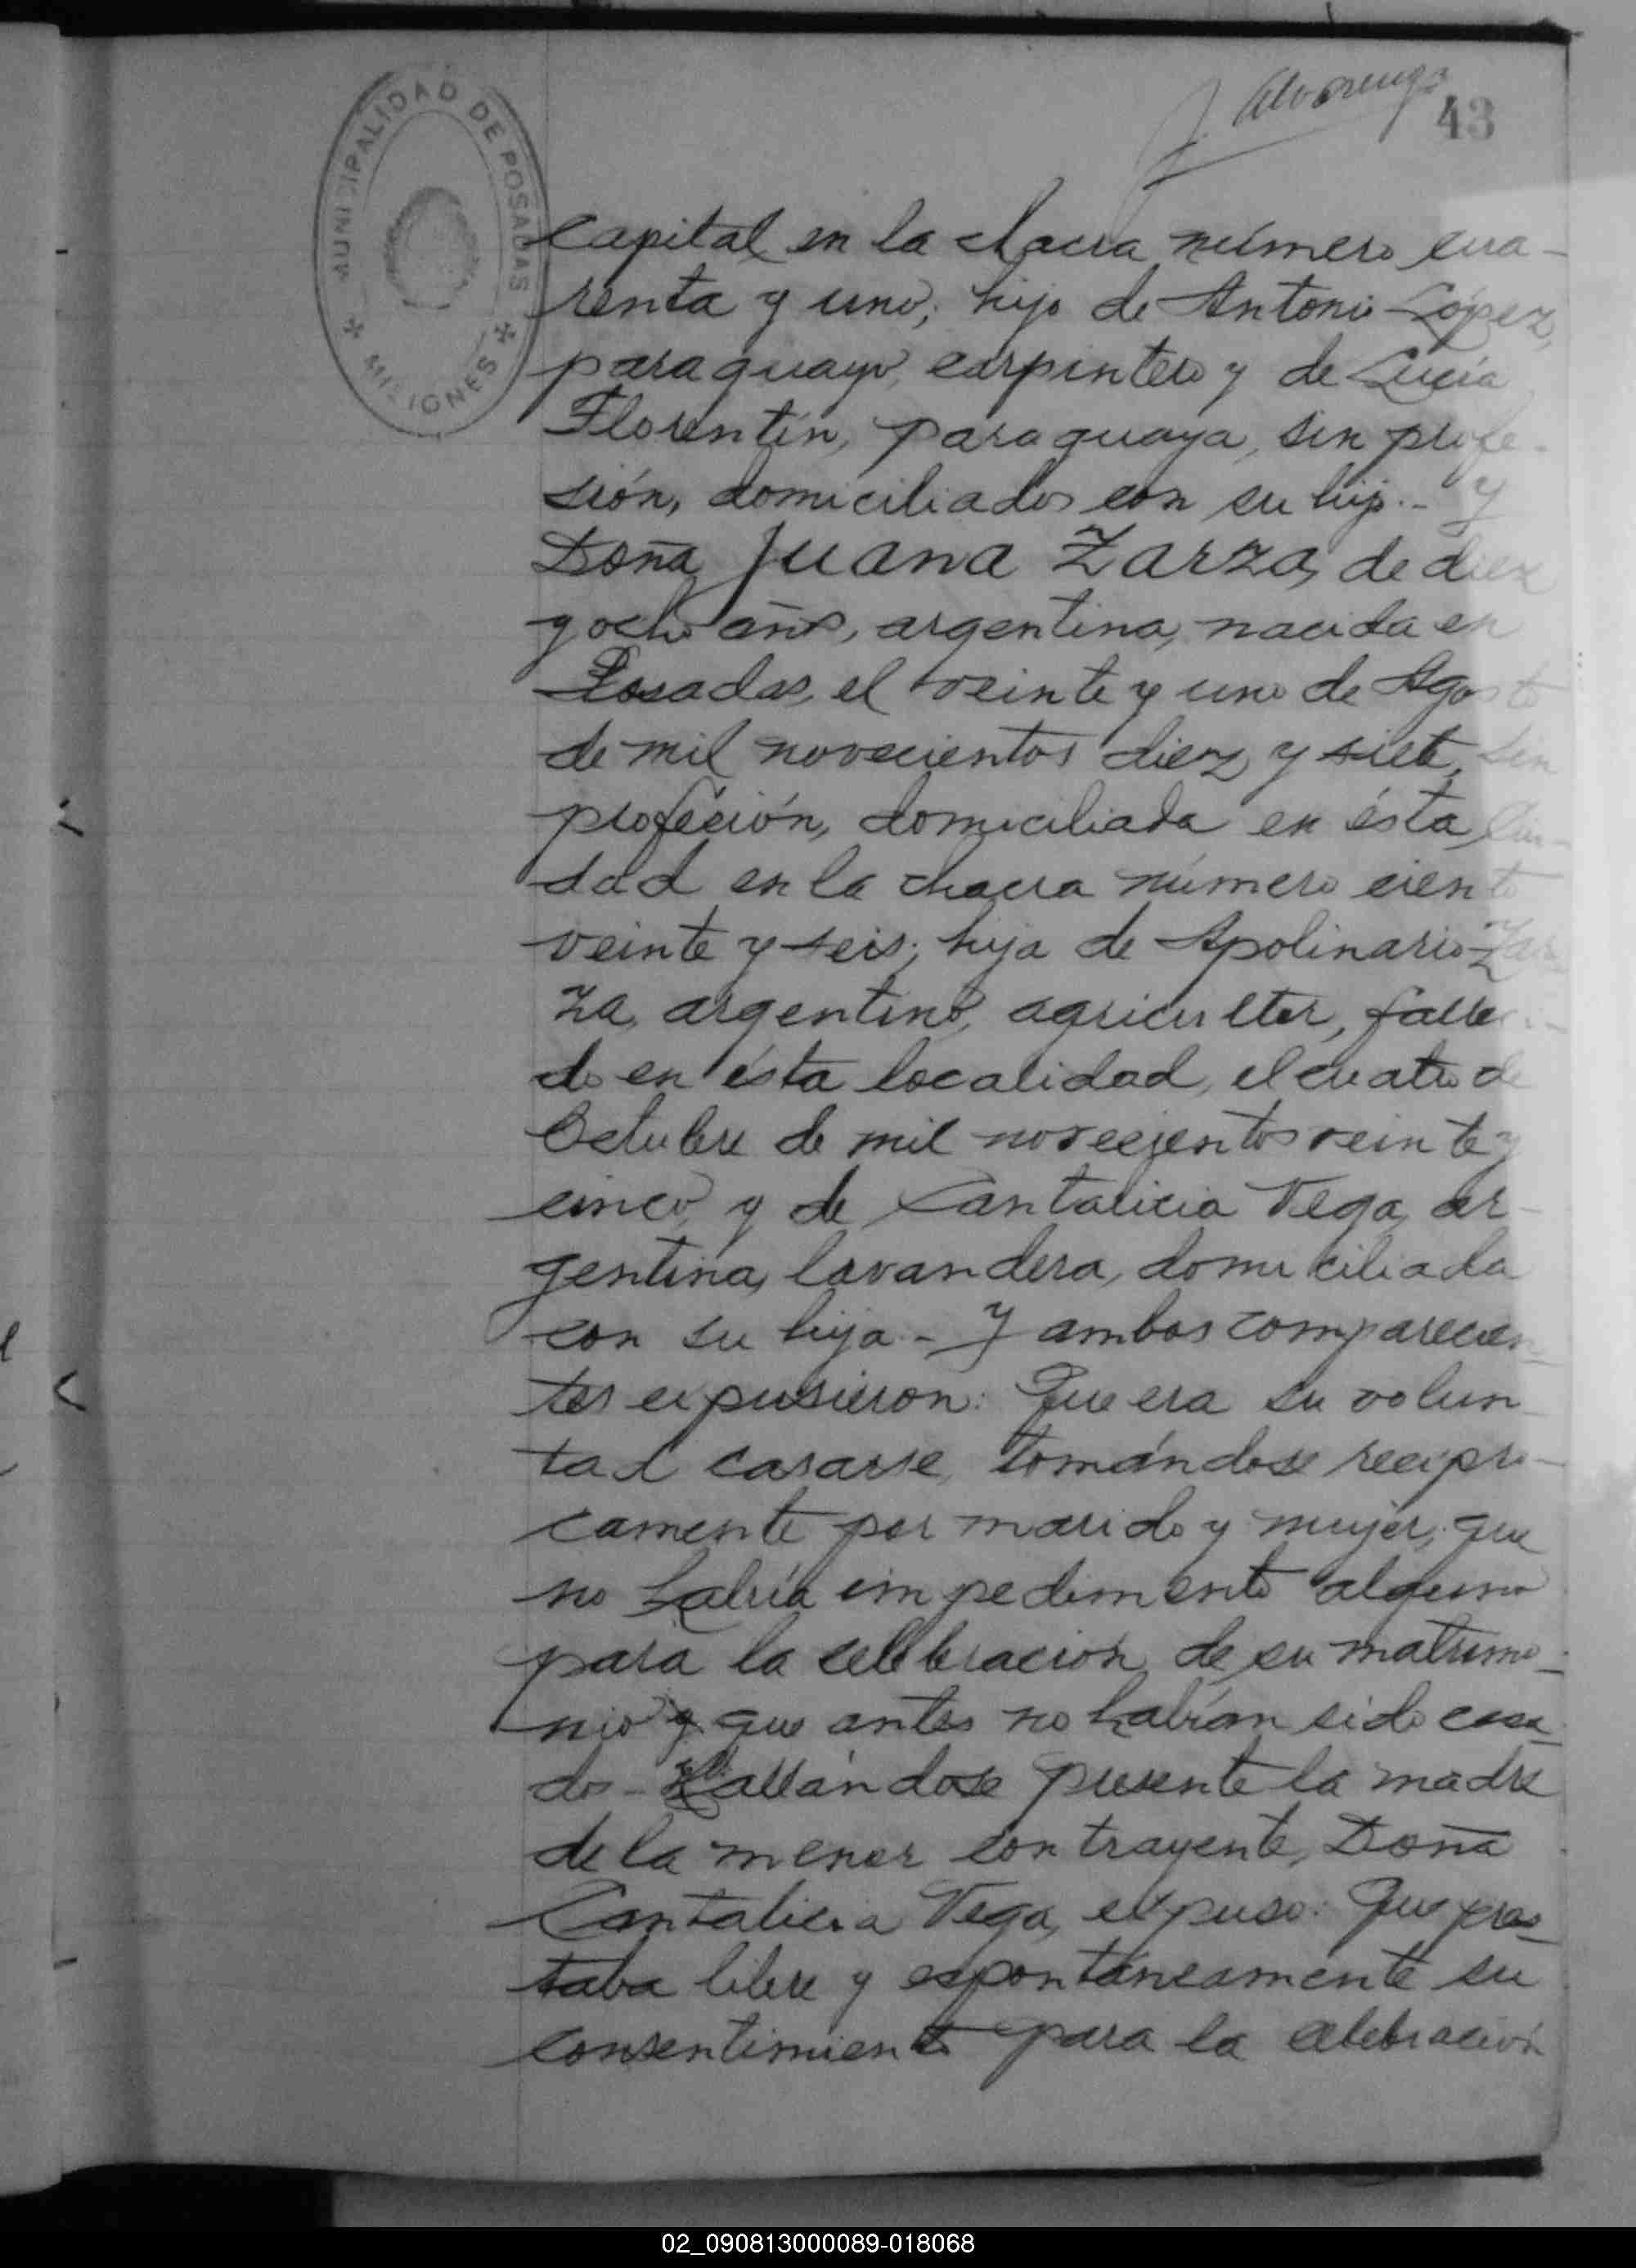 J. Alvarenga
43
MUNICIPALIDAD DE POSADAS
MISIONES
capital en la chacra número cua-
renta y uno; hijo de Antonio López,
paraguayo, carpintero y de Lucía
Florentín, paraguaya, sin profe-
sión, domiciliados con su hijo.- Y
Doña Juana Zarza, de diez
y ocho años, argentina, nacida en
Posadas, el veinte y uno de Agosto
de mil novecientos diez y siete, sin
profesión, domiciliada en ésta Ciu-
dad en la chacra número ciento
veinte y seis; hija de Apolinario Zar-
za, argentino, agricultor, falleci-
do en ésta localidad, el cuatro de
Octubre de mil novecientos veinte y
cinco, y de Cantalicia Vega, ar-
gentina, lavandera, domiciliada
con su hija.- Y ambos comparecien-
tes expusieron: Que era su volun-
tad casarse, tomándose recípro-
camente por marido y mujer; que
no había impedimento alguno
para la celebración de su matrimo-
nio y que antes no habían sido casa-
dos- Hallándose presente la madre
de la menor contrayente, Doña
Cantalicia Vega, expuso: Que pres-
taba libre y espontáneamente su
consentimiento para la celebración
02_090813000089-018068